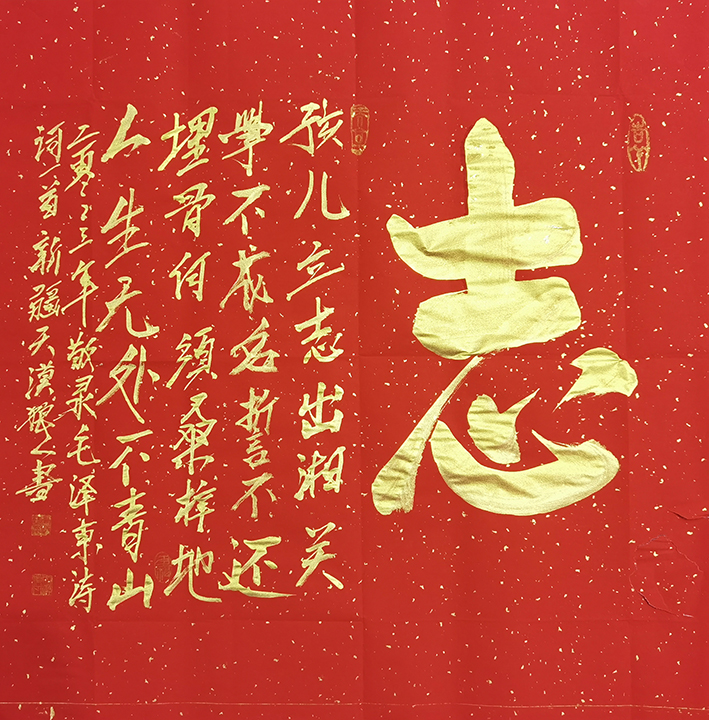 志
孩儿立志出湘关
學不成名誓不还
埋骨何须桑梓地
人生无处不青山
二零二三年敬录毛泽東诗
词一首新疆天漠 人書